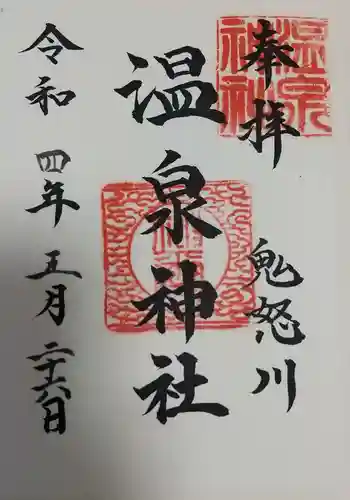 奉拝
鬼怒川
温泉神社
令和四年五月二十六日
温泉
神社